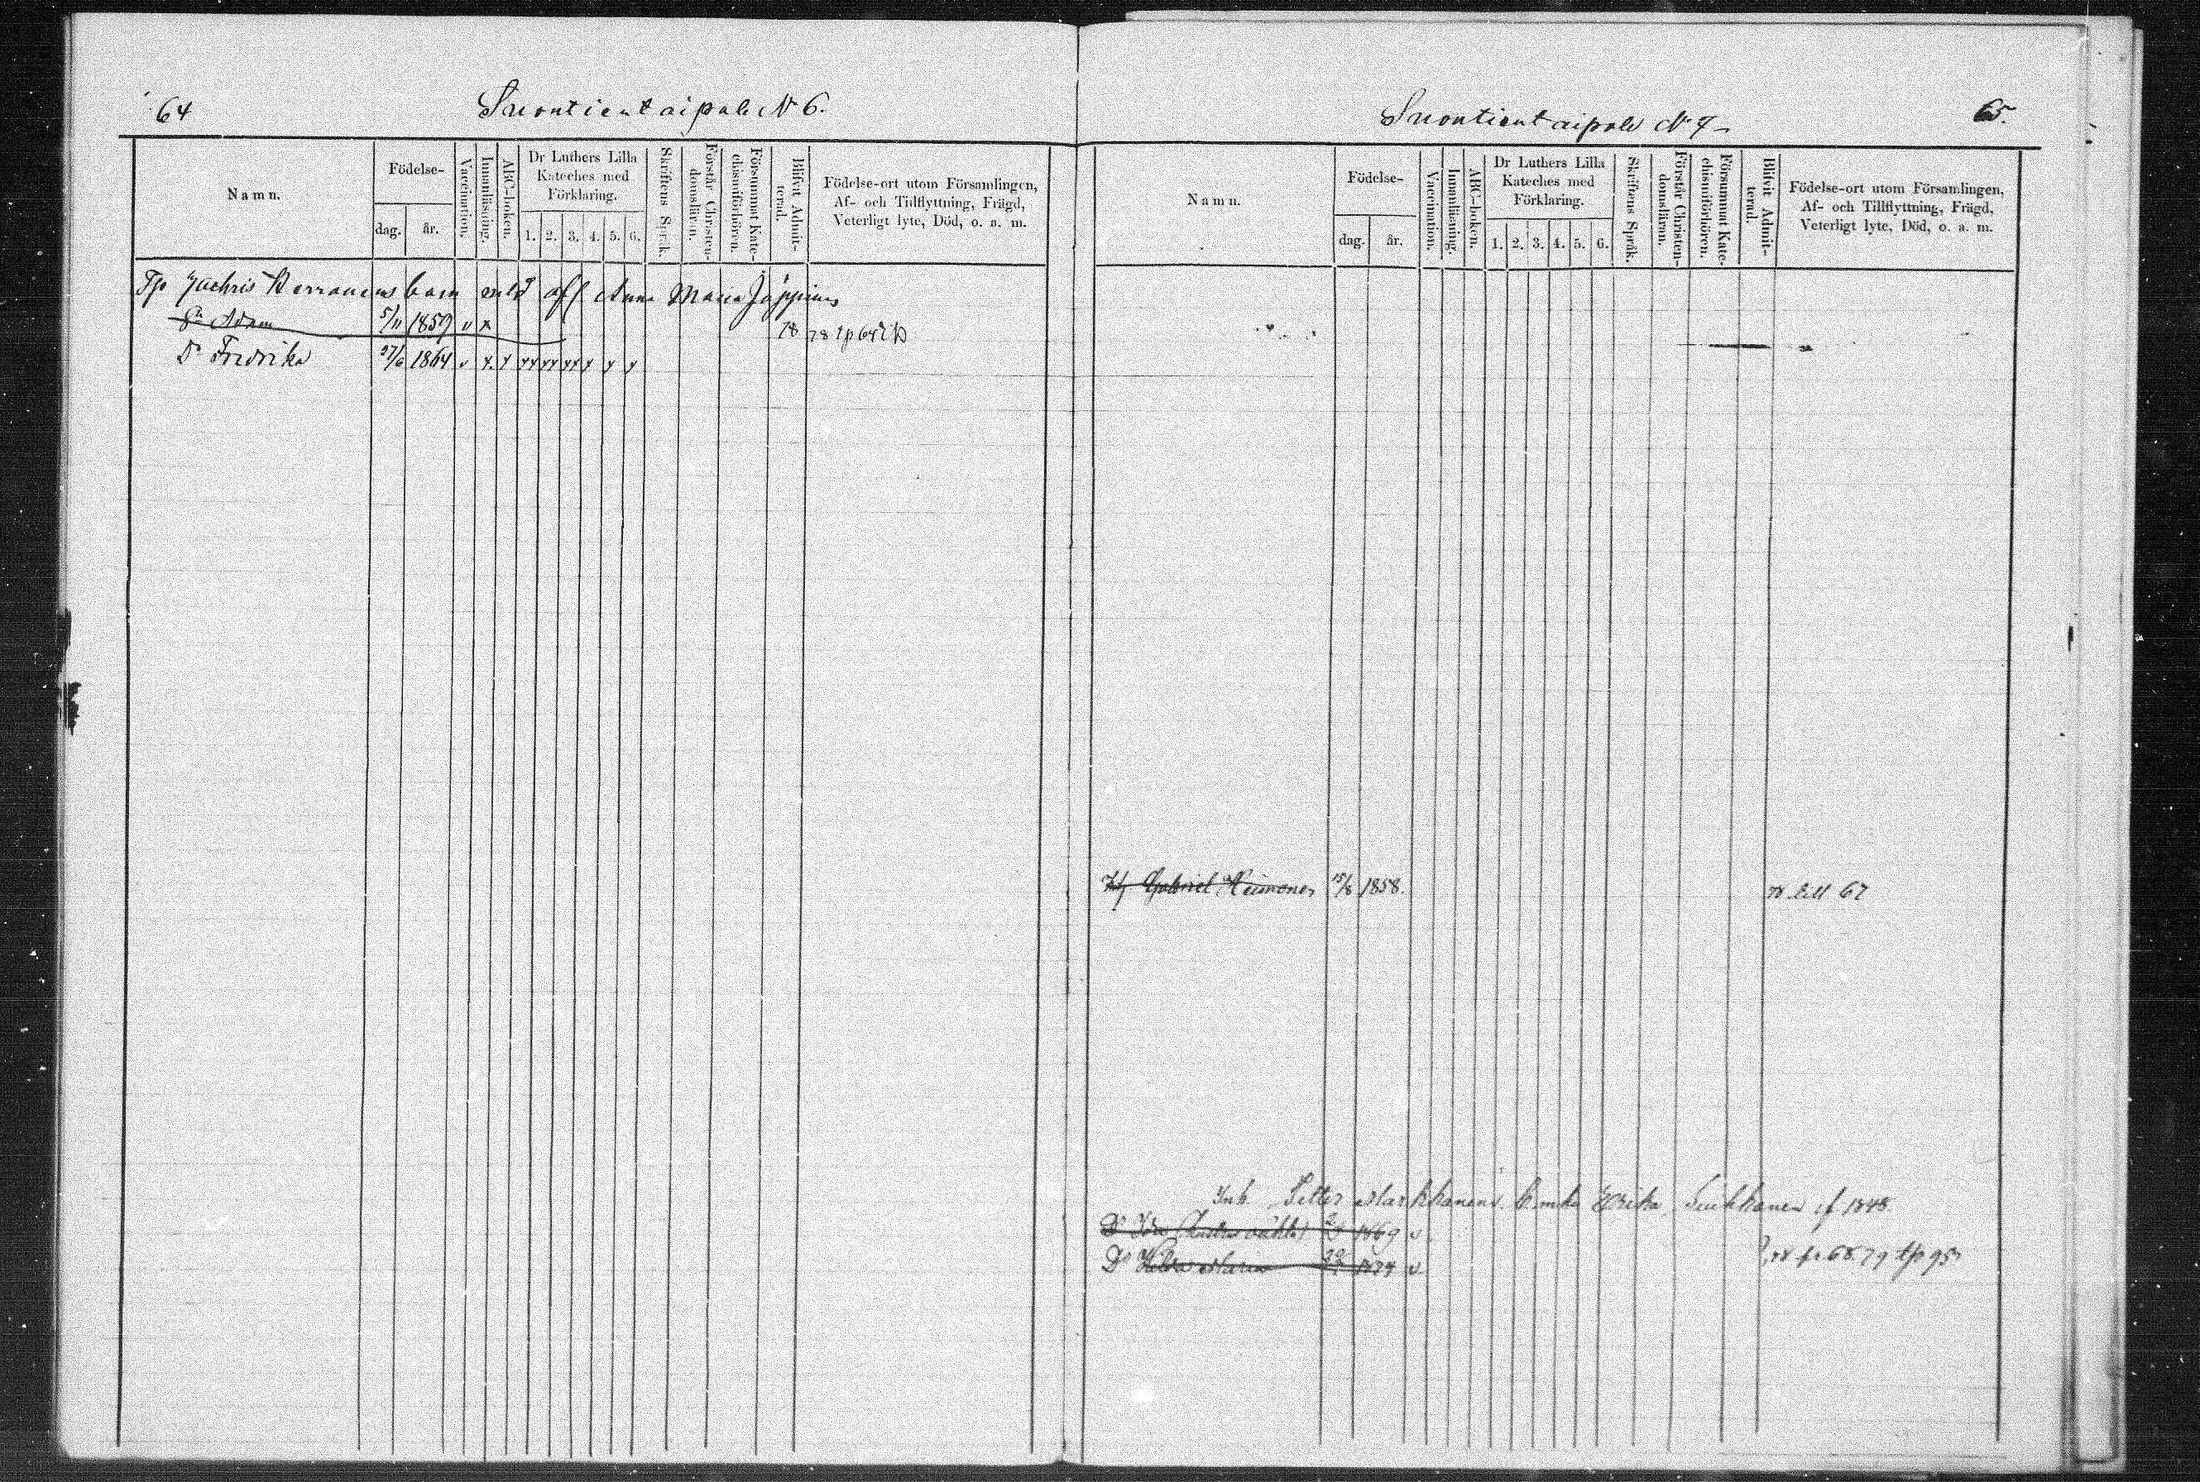 64 Suontientaipale N 6.
Namn.
Födelse-
dag. år.
Vaccination.
Innanläsning.
ABC-boken.
Dr Luthers Lilla Kateches med Förklaring.
1. 2. 3. 4. 5. 6.
Skriftens Språk.
Förstår Christendomsläran.
Försummat Katechismiförhören.
Blifvit Admitterad.
Födelse-ort utom Församlingen,
Af- och Tillflyttning, Frägd,
Veterligt lyte, Död, o. a. m.
Zachris barn Anna Maria
Sn Adam 5/11 1859 v x 78
Dr Fredrika 27/6 1864 v x x xx xx xx x x x
Suontientaipale N 7 65.
Namn.
Födelse-
dag. år.
Vaccination.
Innanläsning.
ABC-boken.
Dr Luthers Lilla Kateches med Förklaring.
1. 2. 3. 4. 5. 6.
Skriftens Språk.
Förstår Christendomsläran.
Försummat Katechismiförhören.
Blifvit Admitterad.
Födelse-ort utom Församlingen,
Af- och Tillflyttning, Frägd,
Veterligt lyte, Död, o. a. m.
Gabriel 15/8 1858. 67
Inh. Petter Markkanens Erika f 1848.
Dr Ida 1869 v
Dr Maria v 79 95